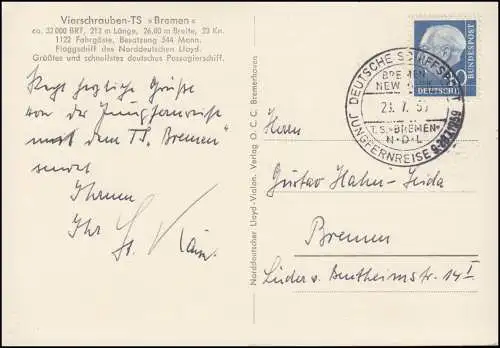 Vierschrauben-TS »Bremen«
ca. 32 000 BRT, 212 m Länge, 26,80 m Breite, 23 Kn.
1122 Fahrgäste, Besatzung 544 Mann.
Flaggschiff des Norddeutschen Lloyd.
Größtes und schnellstes deutsches Passagierschiff.
Recht herzliche Grüße
von der Jungfernreise
mit dem TS. Bremen"
sendet
Ihnen
Ihr
Norddeutscher Lloyd-Violon. Verlag O. C. C. Bremerhaven
DEUTSCHE BUNDESPOST
DEUTSCHE SCHIFFSPOST
BREMEN
NEW
23. 7. 59
T.S. »BREMEN«
N·D·L
JUNGFERNREISE
Herrn
Gustav Hahn-Seida
Bremen
Lüder v. Bentheimstr. 14 I